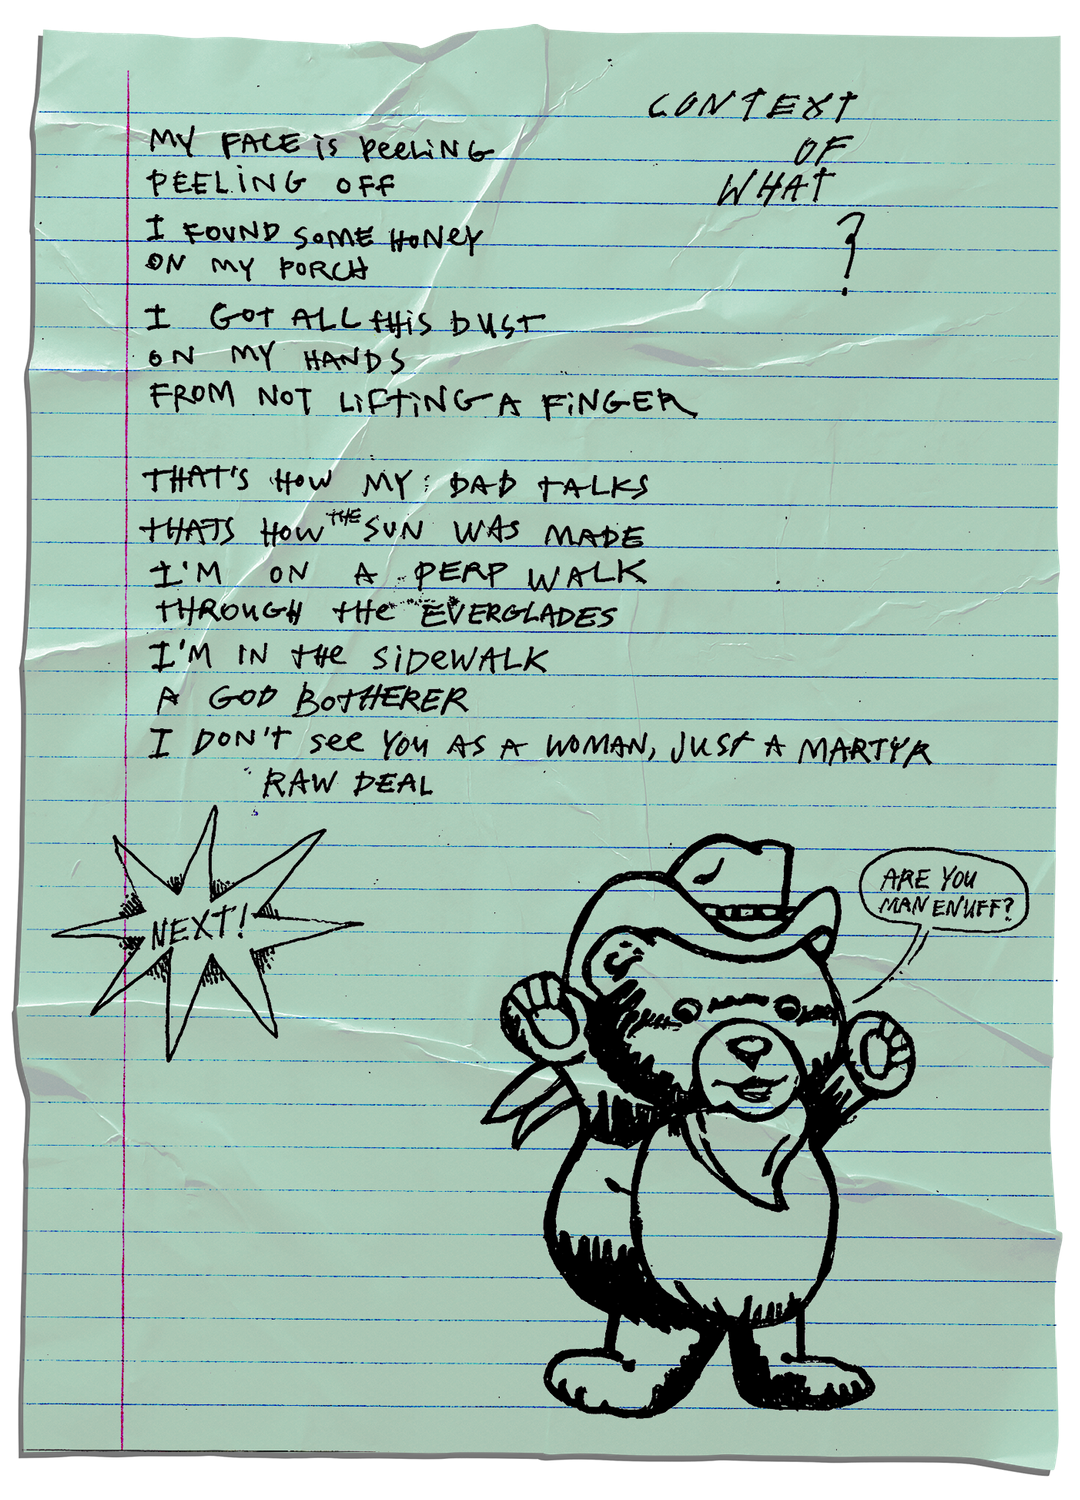 CONTEXT
OF
WHAT
?
MY FACE iS PeeLiNG
PEELiNG OFF
I FOUND SOME HONeY
ON MY PORCH
I GOt ALL tHiS DUST
ON MY HANDS
FROM NOT LiFTiNG A FiNGER
THAT'S HOW MY DAD TALKS
THATS HOW THE SUN WAS MADE
I'M ON A PERP WALK
THROUGH tHe EVERGLADES
I'M IN tHe SiDeWALK
A GOD BOTHERER
I DON'T see YOU AS A WOMAN, JUST A MARTYR
RAW DEAL
NEXT!
ARE YOU
MAN ENUFF?